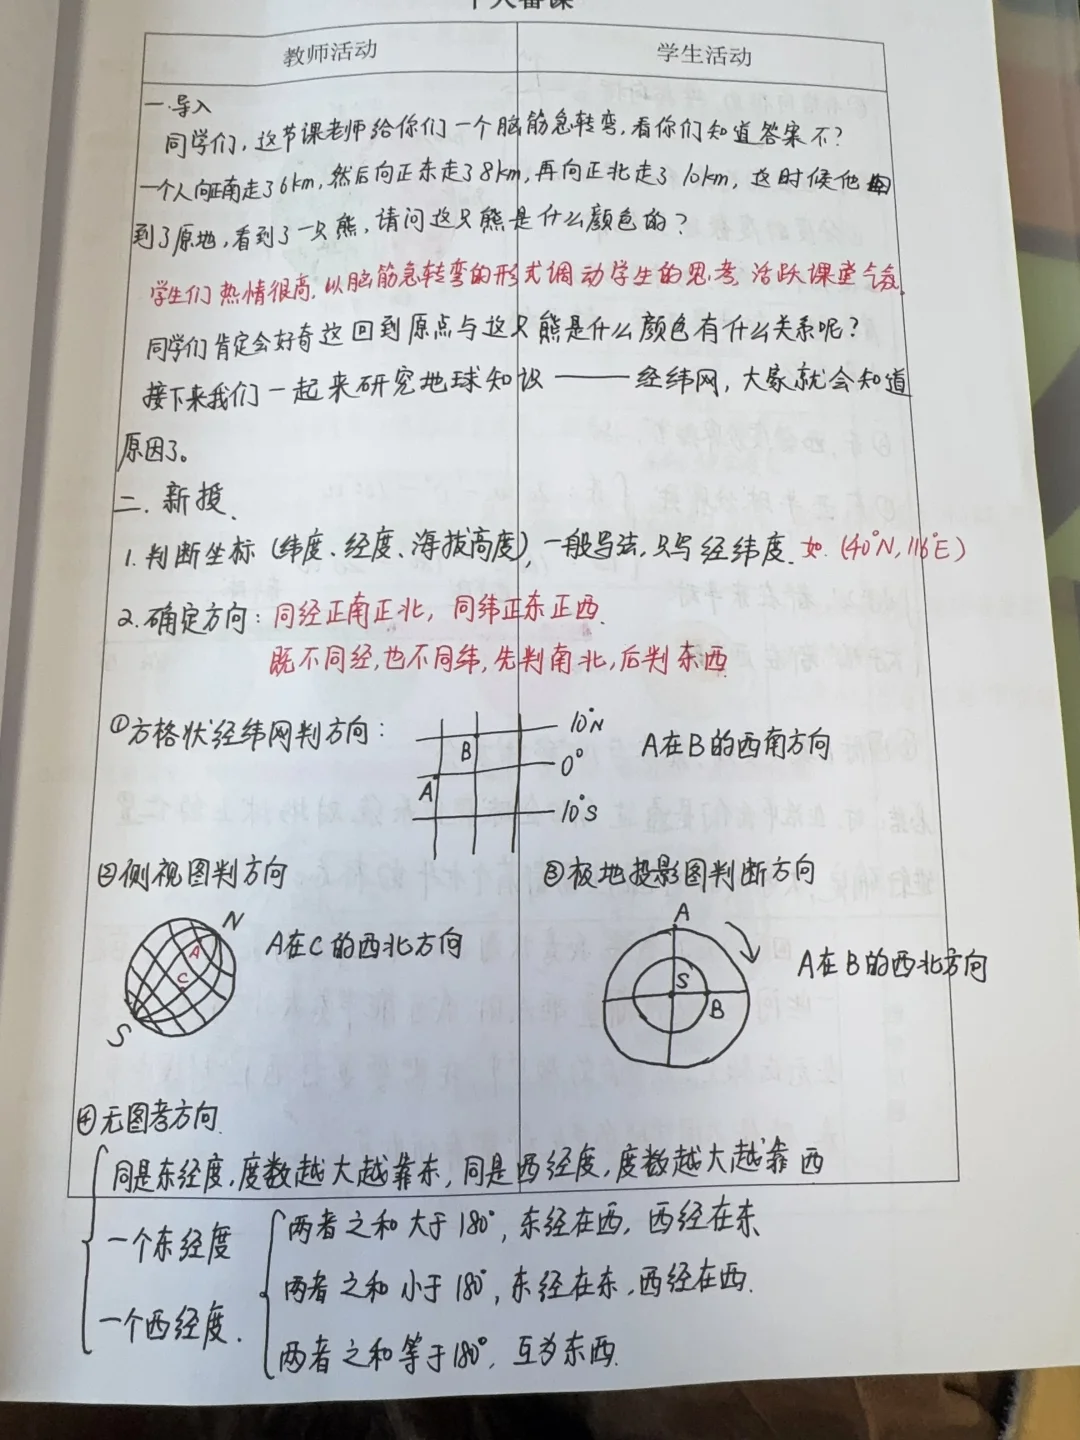 个人备课
教师活动 学生活动
一.导入
同学们,这节课老师给你们一个脑筋急转弯,看你们知道答案不?
一个人向正南走了6km,然后向正东走了8km,再向正北走了10km,这时候他
到了原地,看到了一只熊,请问这只熊是什么颜色的?
学生们热情很高.以脑筋急转弯的形式调动学生的思考,活跃课堂气氛.
同学们肯定会好奇这回到原点与这只熊是什么颜色有什么关系呢?
接下来我们一起来研究地球知识——经纬网,大家就会知道
原因了。
二.新授.
1.判断坐标(纬度、经度、海拔高度),一般写法,只写经纬度.如.(40°N,116°E)
2.确定方向:同经正南正北,同纬正东正西.
既不同经,也不同纬,先判南北,后判东西
①方格状经纬网判方向:
10°N
B
0°
A
10°S
A在B的西南方向
②侧视图判方向
N
A
C
S
A在C的西北方向
③极地投影图判断方向
A
S
B
A在B的西北方向
④无图考方向.
同是东经度,度数越大越靠东,同是西经度,度数越大越靠西
一个东经度
一个西经度.
两者之和大于180°,东经在西,西经在东
两者之和小于180°,东经在东,西经在西.
两者之和等于180°,互为东西.